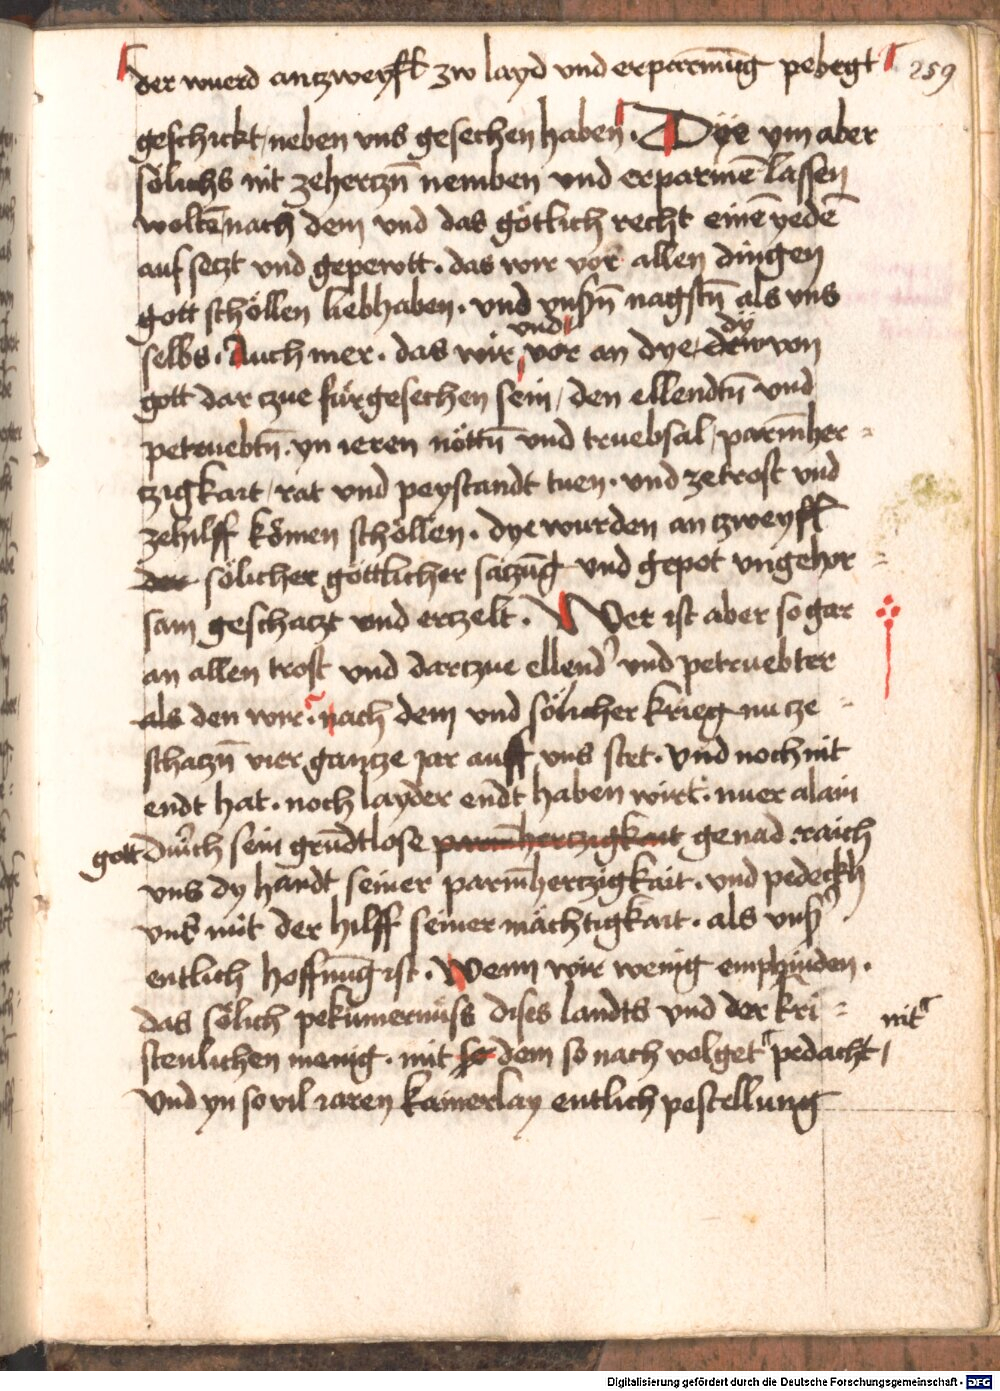 der wuerd antzweyfft zw layd vnd erparmūg pebegt 259
geschickt, neben vns gesechen haben. Dÿe ym aber
sölichs nit zehertzn̄ nemben vnd erparmē lassen
woltē, nach dem vnd das götlich recht einē yedē
auf seczt vnd gepewtt. das wir vor allen dingen
gott schöllen liebhaben. vnd vnsn̄ nagstn̄ als vns
selbs. Auch mer. das wir vnd vor an dye dy drw von
gott dar zue fürgesechen sein, den ellendtn̄ vnd
petruebtn̄. yn ieren nöttn̄ vnd truebsal, parm̄her=
tzigkait, rat vnd peystandt tuen. vnd zetrost vnd
zehilff kömen schöllen. dye wurden an tzweyffl
der sölicher göttlicher saczūg vnd gepot vngehor=
sam geschaczt vnd erczelt. Wer ist aber so gar
an allen trost vnd darczue ellend' vnd petruebter
als den wir. nach dem vnd sölicher krieg nu cze=
schaczn̄ vier gantze jar auff vns stet. vnd noch nit
endt hat. noch layder endt haben wirt. nuer alain
gott durch sein grūdtlose parm̄hertzigkait genad. raich
vns dy handt seiner parm̄hertzigkait. vnd pedeckh
vns mit der hilff seiner mächtigkait. als vns'
entlich hoffnūg ist. Wenn wir wenig emphinden.
das sölich pekümernüss dises landts vnd der kri=
stenlichen menig. mit so dem so nach volget nit pedacht,
Vnd yn so vil iaren kainerlay entlich pestellung
Digitalisierung gefördert durch die Deutsche Forschungsgemeinschaft - DFG